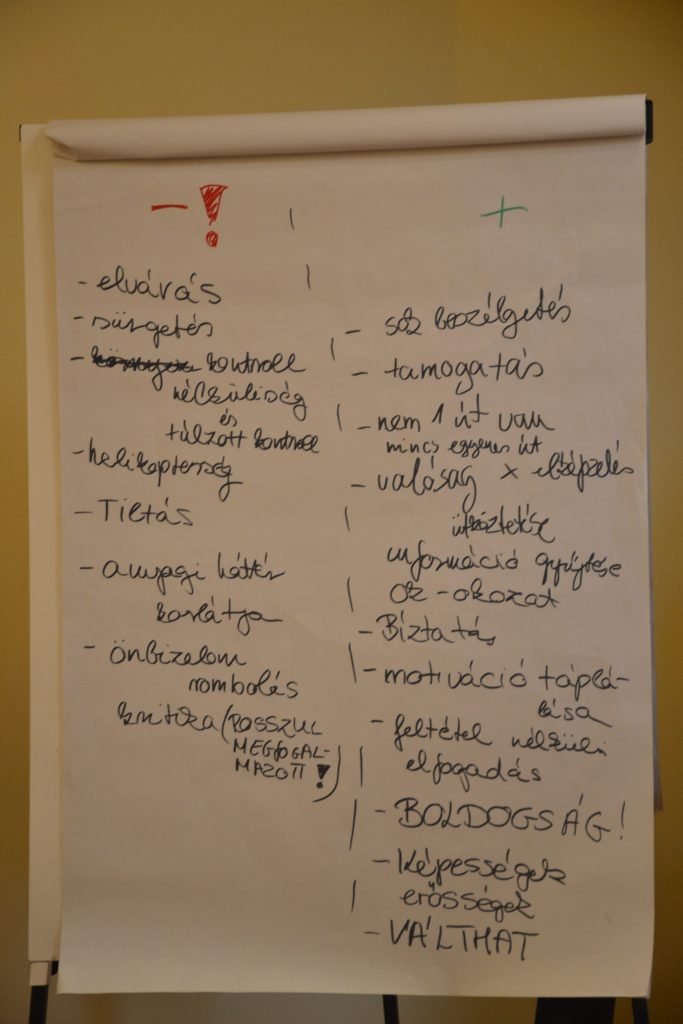 - !
- elvárás
- sürgetés
- kontroll
nélküliség
és
túlzott kontroll
- helikopterség
- Tiltás
- anyagi háttér
korlátja
- önbizalom
rombolás
kritika (ROSSZUL
MEGFOGAL-
MAZOTT !)
+
- sok beszélgetés
- támogatás
- nem 1 út van
nincs egyenes út
- valóság x elképzelés
ütköztetése
információ gyűjtése
ok-okozat
- Bíztatás
- motiváció táplá-
lása
- feltétel nélküli
elfogadás
- BOLDOGSÁG!
- Képességek
erősségek
- VÁLTHAT